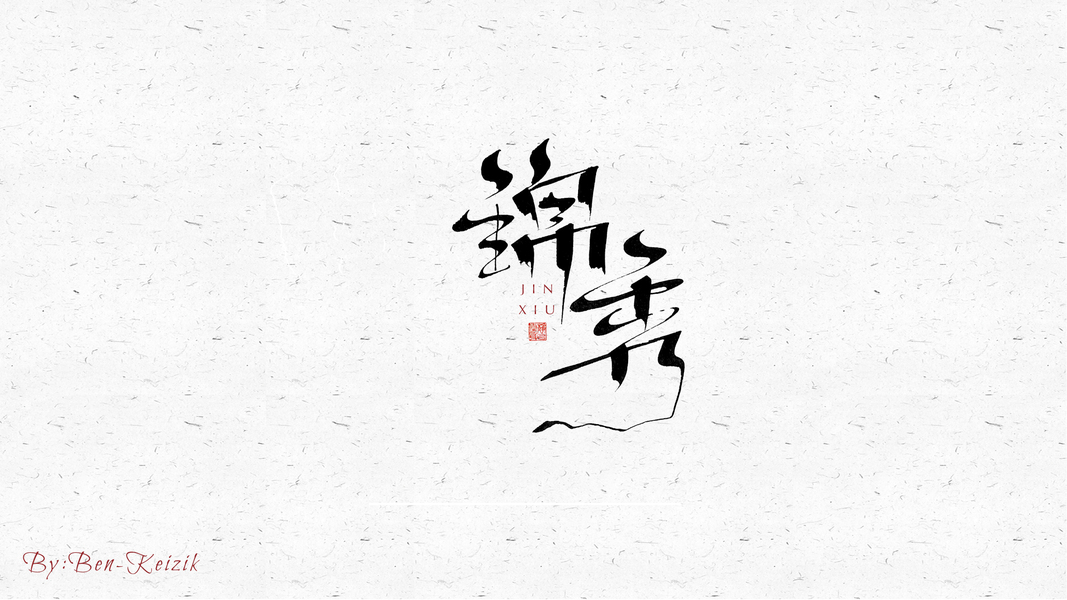 錦秀
JIN
XIU
By:Ben-Keizik